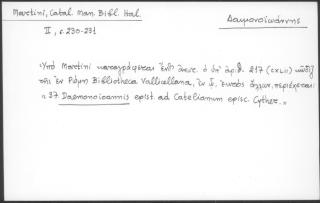 Martini, Catal. Man. Bibl. Ital.
Δαμονοϊωάννης
II, σ. 230-231
"Υπό Martini καταγράφεται ὁ ὑπ' ἀριθ. 217 (CXLII) κώδιξ
τῆς ἐν Ρώμῃ Bibliotheca Vallicellana, ἐν ᾧ, ἐντὸς ἄλλων, περιέχεται:
"37 Daemonoioannis epist. ad Catelianum episc. Cyther."